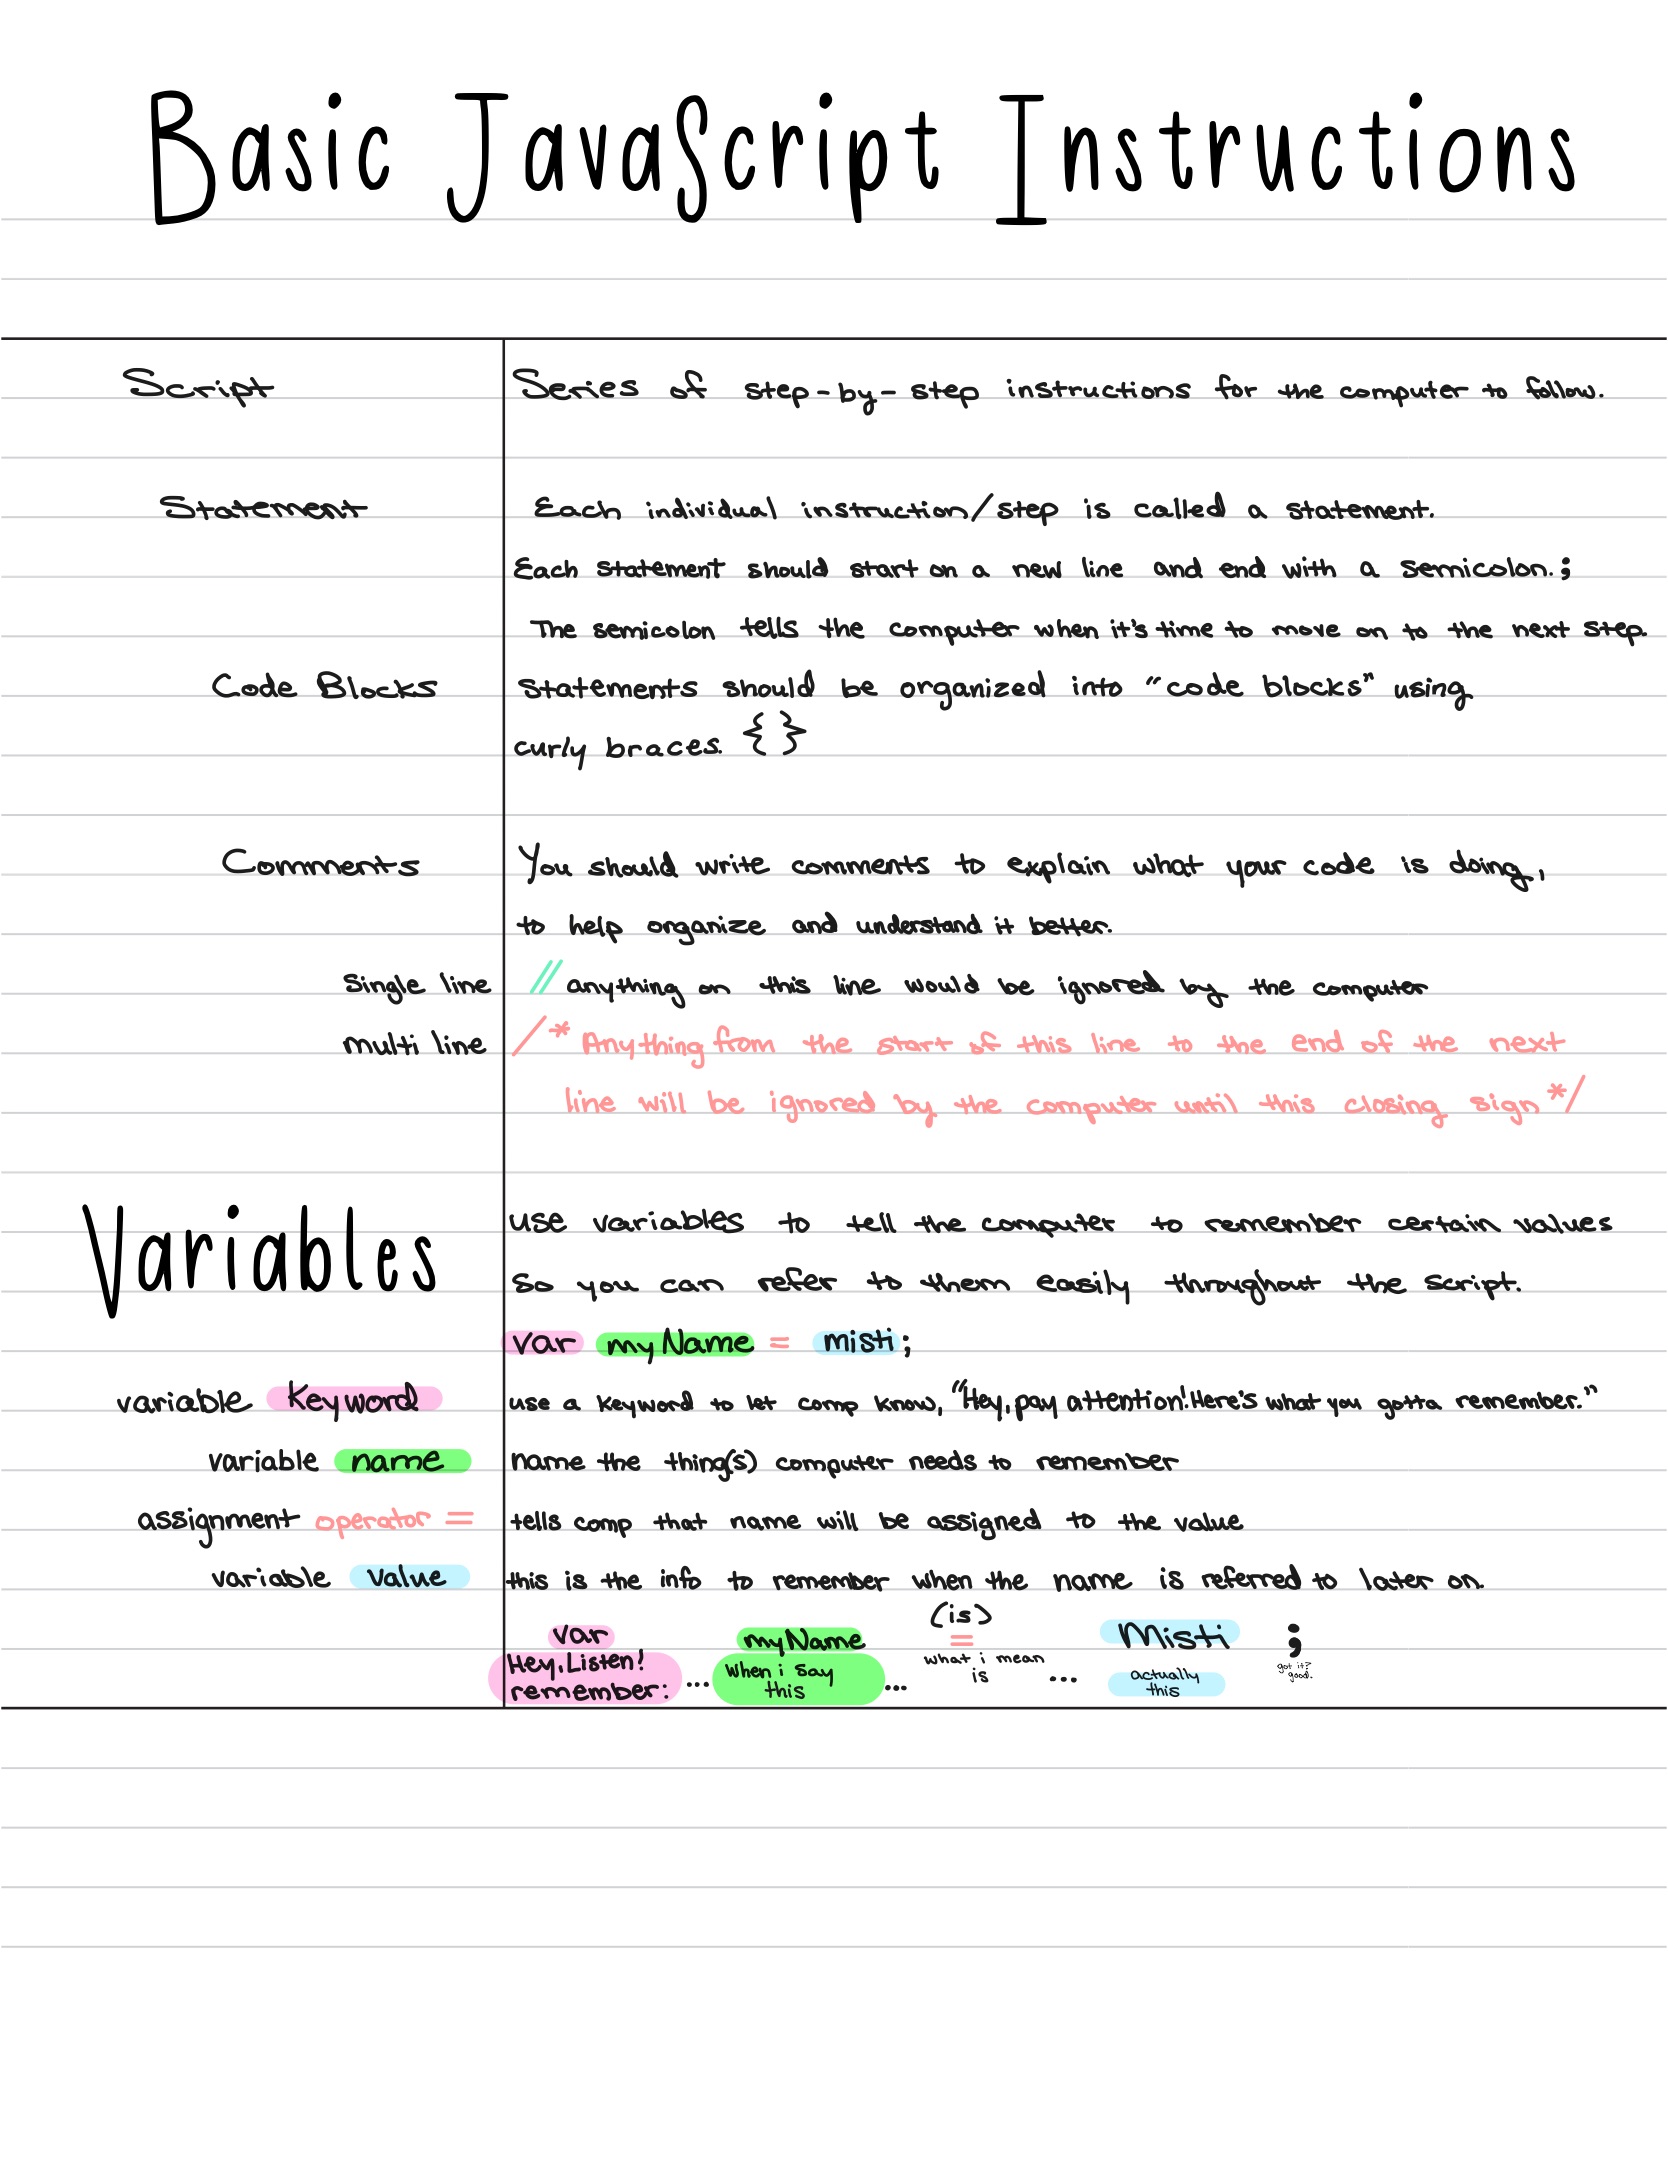 Basic JavaScript Instructions
Script Series of step-by-step instructions for the computer to follow.
Statement Each individual instruction/step is called a statement.
Each statement should start on a new line and end with a semicolon. ;
The semicolon tells the computer when it's time to move on to the next step.
Code Blocks Statements should be organized into "code blocks" using
curly braces. { }
Comments You should write comments to explain what your code is doing,
to help organize and understand it better.
Single line // anything on this line would be ignored by the computer
multi line /* Anything from the start of this line to the end of the next
line will be ignored by the computer until this closing sign */
Variables use variables to tell the computer to remember certain values
So you can refer to them easily throughout the script.
var myName = misti;
variable Keyword use a keyword to let comp know, "Hey, pay attention! Here's what you gotta remember."
variable name name the thing(s) computer needs to remember
assignment operator = tells comp that name will be assigned to the value
variable value this is the info to remember when the name is referred to later on.
(is)
var myName = Misti ;
Hey, Listen! remember: ... When i say this ... what i mean is ... actually this got it? good.